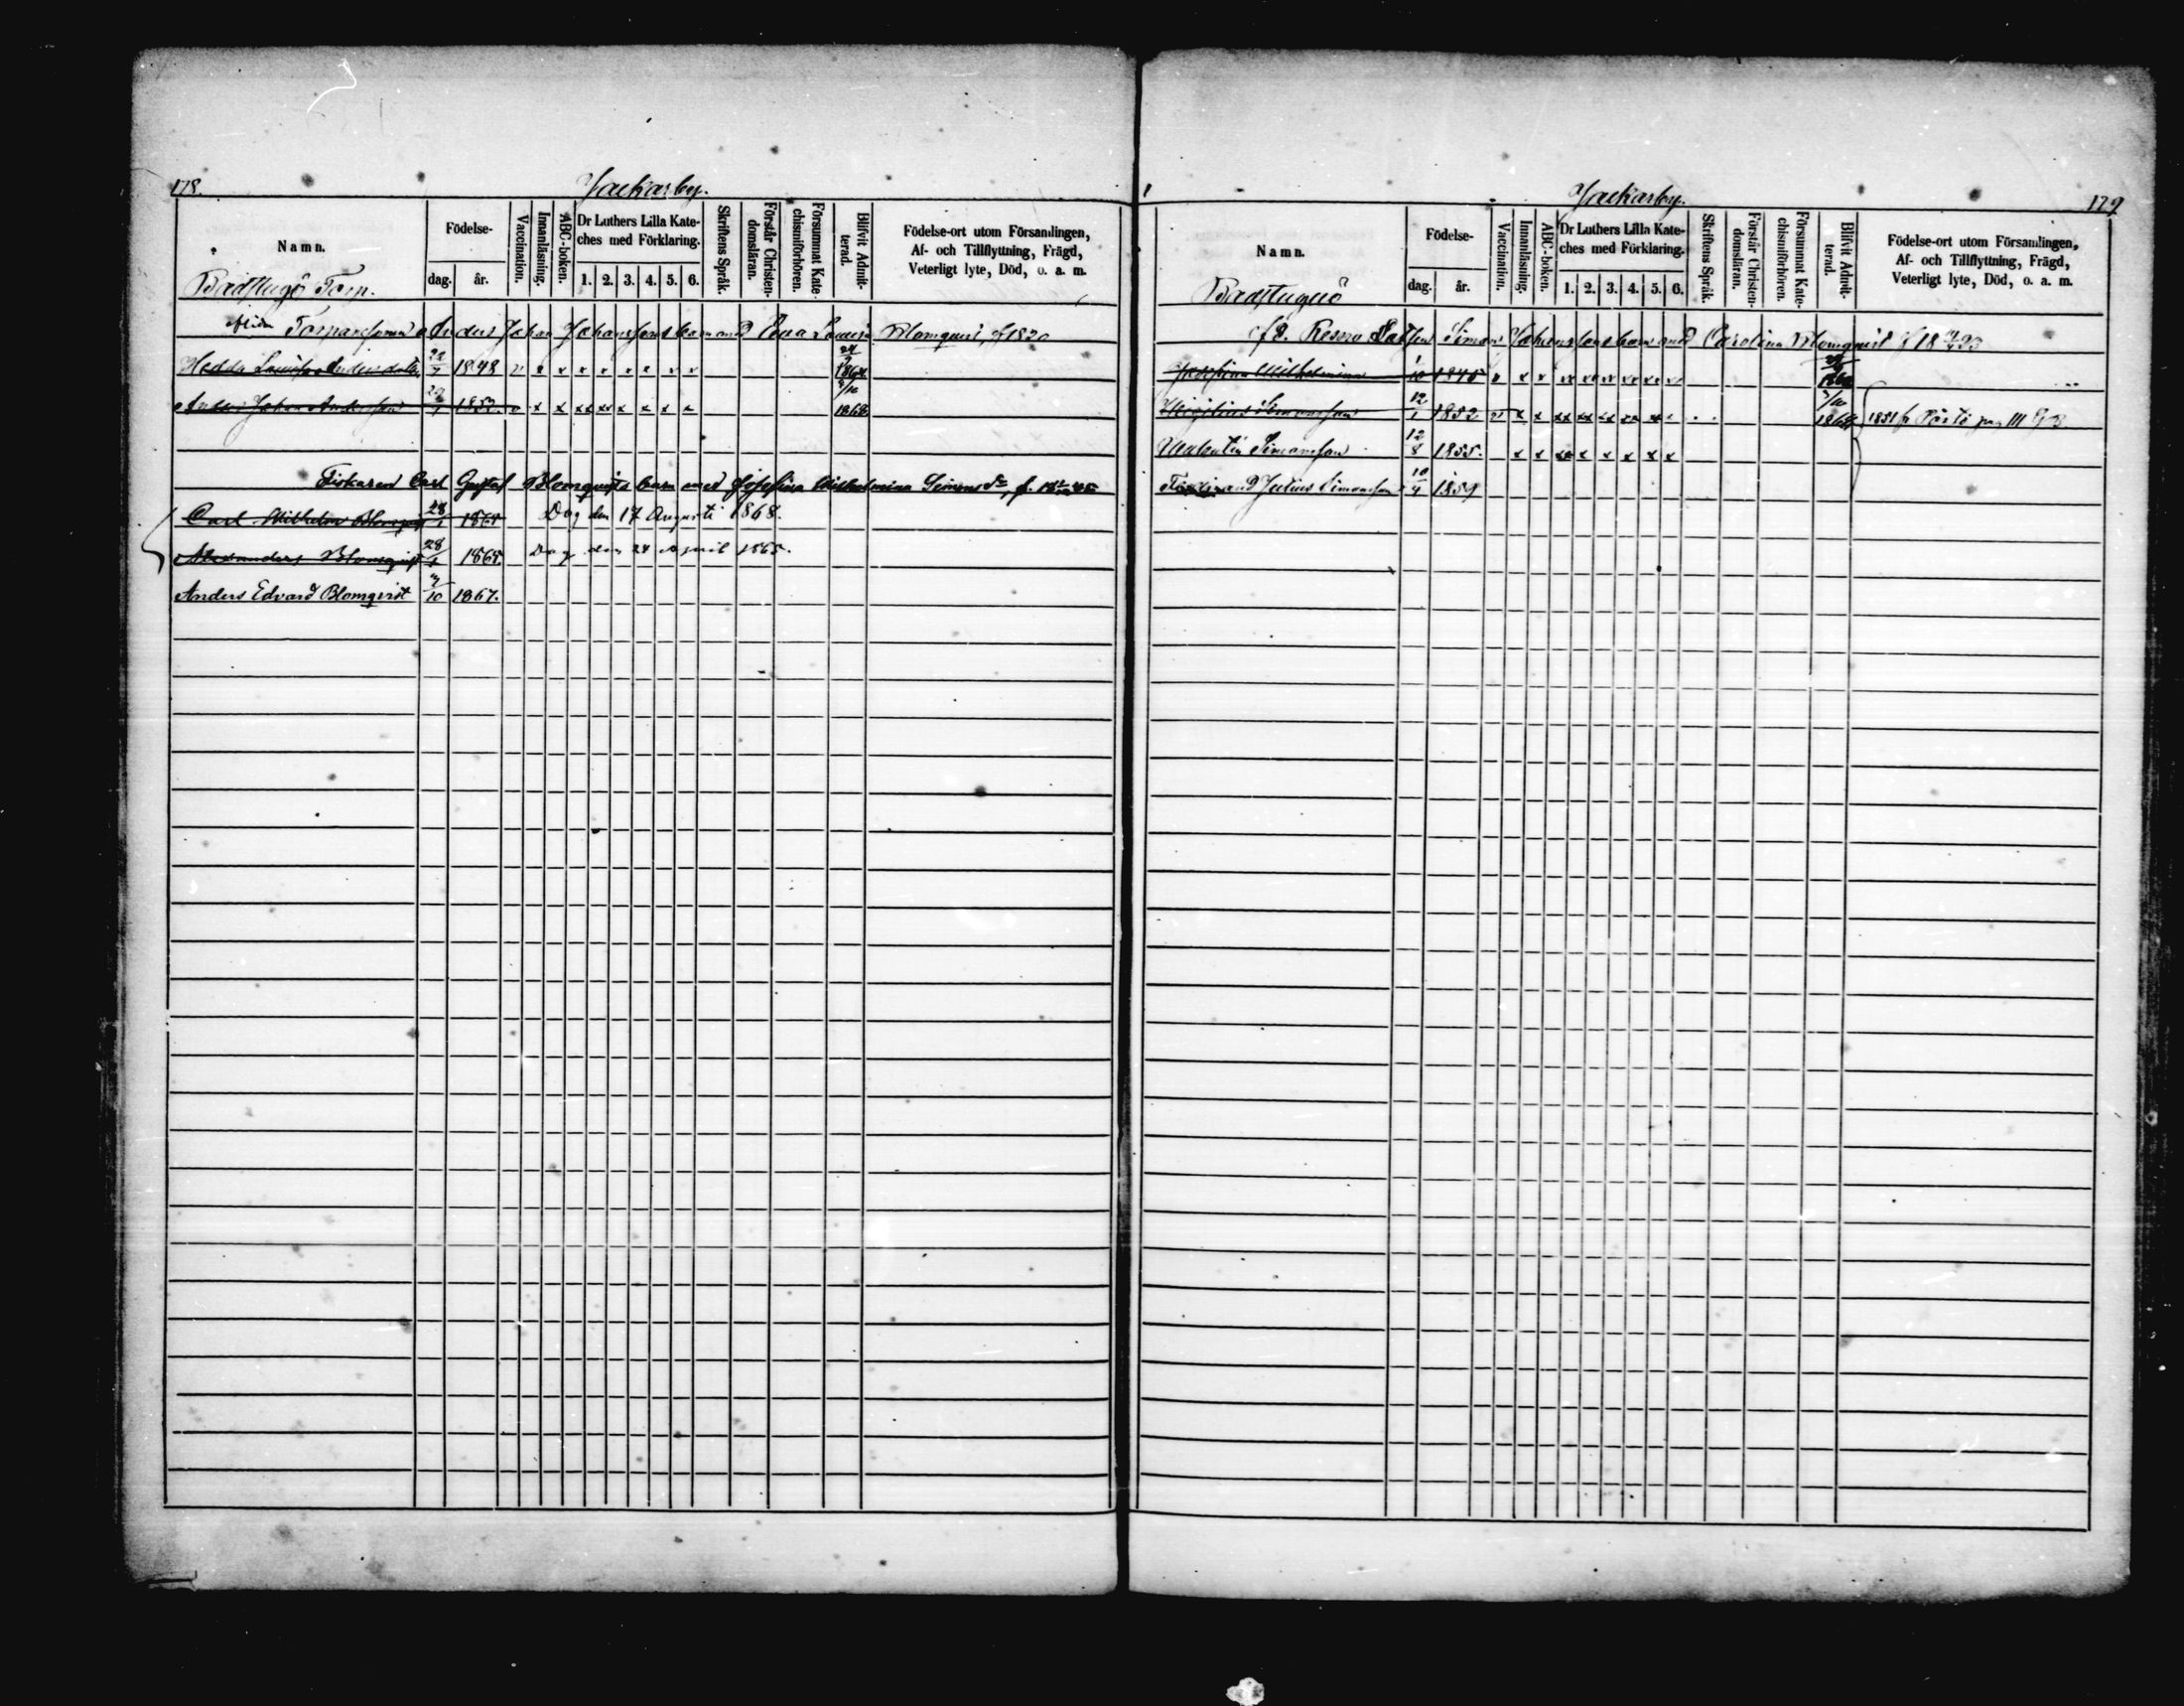 178. Jackarby.
Namn. Födelse- dag. år. Vaccination. Innanläsning. ABC-boken. Dr Luthers Lilla Kate- ches med Förklaring. 1. 2. 3. 4. 5. 6. Skriftens Språk. Förstår Christen- domsläran. Försummat Kate- chismiförhören. Blifvit Admit- terad. Födelse-ort utom Församlingen, Af- och Tillflyttning, Frägd, Veterligt lyte, Död, o. a. m.
Badstugö Torp.
Torparesonen Anders Johan Johanssons barn med Eva Lovisa Blomquist, f 1820
Hedda Lovisa Andersdotter 1848 v x x x x x x x x 24/9 1864
Anders Johan Andersson 1852. v x x xx xx x x x x 3/10 1868
Fiskaren Carl Gustaf Blomquists barn med Josefina Wilhelmina Simons dr, f.
Carl Wilhelm Blomquist 28/1 1865 Dog den 17 Augusti 1868.
Alexander Blomquist 28/1 1865. Dog den 24 April 1865.
Anders Edvard Blomqvist 10 1867.
Jackarby. 179
Namn. Födelse- dag. år. Vaccination. Innanläsning. ABC-boken. Dr Luthers Lilla Kate- ches med Förklaring. 1. 2. 3. 4. 5. 6. Skriftens Språk. Förstår Christen- domsläran. Försummat Kate- chismiförhören. Blifvit Admit- terad. Födelse-ort utom Församlingen, Af- och Tillflyttning, Frägd, Veterligt lyte, Död, o. a. m.
Badstuguö
f d. Reserv Simon Johanssons barn med Carolina Blomquist f 18 23
Josefina Wilhelmina 1/10 1845 v x x xx xx xx xx xx
Wigilius Simonsson 12/1 1852. v x x xx xx xx xx xx x 3/10 1868 1851 fr pag III
Valentin Simonsson 12/8 1855. x x xx x x x x x
Ferdinand Julius Simonsson 10/4 1859